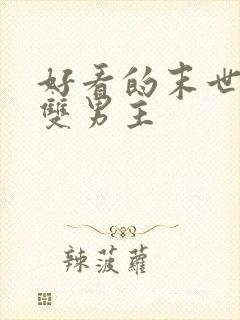 好看的末世
雙男主
辣菠蘿